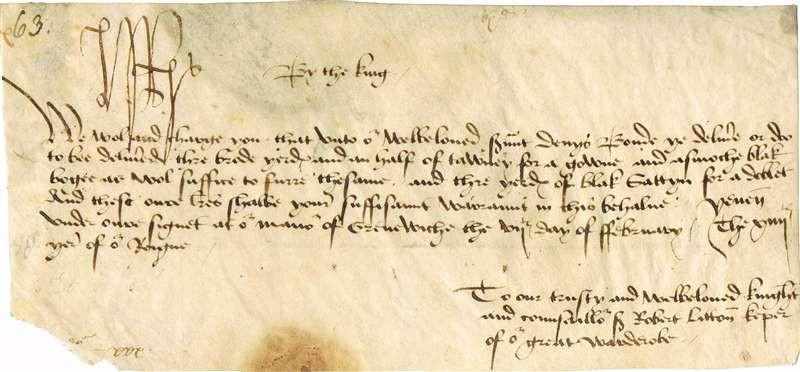 63.
By the king
We wol and charge you that unto oʳ welbeloved sʳunt Denys Bonde ye deliuʳe or doo
to bee deliuʳed thre brode yerdꝭ and an half of tawney for a gowne and asmoche blak
bogee as wol suffice to furre thesame. and thre yerdꝭ of blak Sattyn for a doblet
And these oure lrēs shalbe youʳ suffisaunt warannt in this behalue. Yeuen
under oure signet at oʳ manoʳ of Grenewiche the vij day of ffebruary. The
yeʳ of oʳ Reigne
To our trusty and welbeloved knight
and counsailloʳ sʳ Robert Litton keper
of oʳ great warderobe